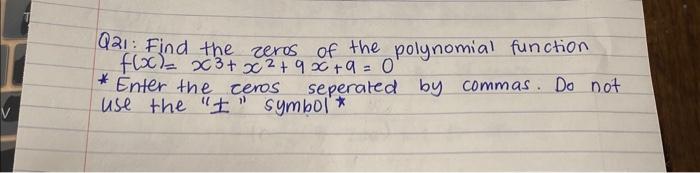 Q21: Find the zeros of the polynomial function
f(x)= x³+ x²+9x+9 = 0
* Enter the zeros seperated by commas. Do not
use the "±" symbol *